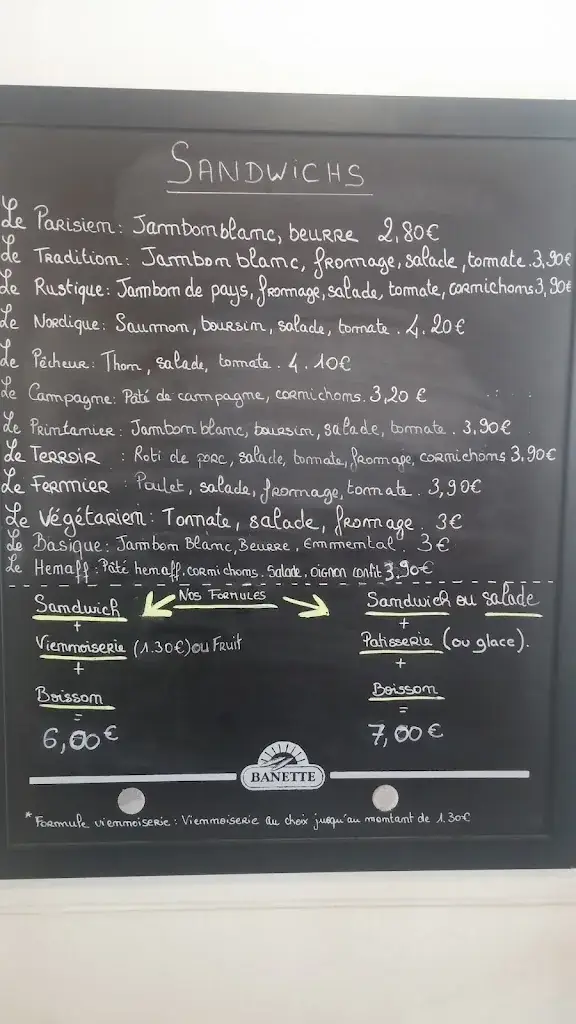 SANDWICHS
Le Parisien: Jambon blanc, beurre 2,80€
Le Tradition: Jambon blanc, fromage, salade, tomate. 3,90€
Le Rustique: Jambon de pays, fromage, salade, tomate, cornichons 3,90€
Le Nordique: Saumon, boursin, salade, tomate. 4.20€
Le Pêcheur: Thon, salade, tomate. 4.10€
Le Campagne: Pâté de campagne, cornichons. 3,20 €
Le Printanier: Jambon blanc, boursin, salade, tomate. 3.90€
Le Terroir : Roti de porc, salade, tomate, fromage, cornichons 3,90€
Le Fermier : Poulet, salade, fromage, tomate. 3,90€
Le Végétarien: Tomate, salade, fromage. 3€
Le Basique: Jambon Blanc, Beurre, Emmental. 3€
Le Hemaff: Pâté hemaff, cornichons. Salade, oignon confit 3,90€
Nos Formules
Sandwich
+
Viennoiserie (1.30€) ou Fruit
+
Boisson
=
6,00€
Sandwich ou salade
+
Patisserie (ou glace).
+
Boisson
=
7,00€
BANETTE
* Formule viennoiserie : Viennoiserie au choix jusqu'au montant de 1.30€